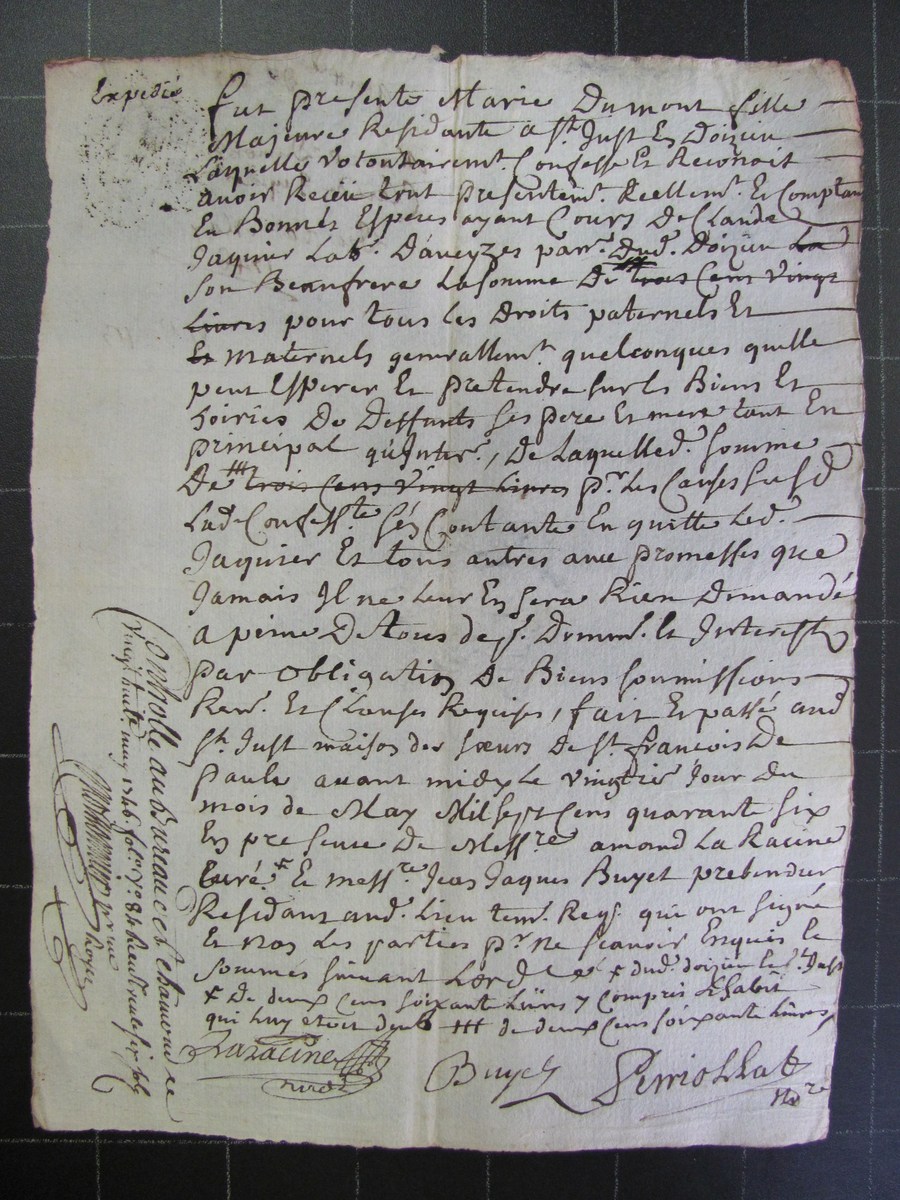 Expedié
fut presente Marie Dumont fille
Majeure Residante a St. Just En Doizieu
Laquelle volontairemt. Confesse Et Reconoit
avoir Receu tout presentemt. Reellemt. Et Comptan
En Bonnes Esperes ayant Cours De Claude
Jaquier Labr. D'aveyzes parr. dud. Doizieu La
son Beaufrere La somme De trois Cens Vingt
Livres pour tous les Droits paternels Et
Et maternels generallemt. quelconques quelle
peut Esperer Et pretendre sur les Biens Et
hoiries De Deffunts ses pere Et mere tant En
principal qu'Inter., De Laquelle d. somme
De trois Cens Vingt Livres pr. Les Causes susd
Lad. Confesste. sen Contante En quitte Led.
Jaquier Et tous autres avec promesses que
Jamais Il ne leur En sera Rien Demandé
a peine De tous Domm. et Interest
par obligation De Biens soumissions
Ren. Et Clauses Requises, fait Et passé aud
St. Just maison des sœurs De St. francois De
paule avant midy Le vingtie Jour Du
mois de May Mil sept Cens quarante six
En presence De Messre. amond La Racine
Curé Et messre. Jean Jaques Buyet prebendier
Residant aud. Lieu tem. Req. qui ont signé
Et non Les parties pr. ne scavoir Enquis Et
sommés suivant Lord dud. doizieu St. Just
De deux Cens soixante Livres y Compris
qui luy etoit deub de deux Cens soixante Livres
Laracine
curé
Buyet
Perriollat
Nore
Controllé au Bureau de St chamond ce
vingt huit may 1746 fol. 84 Receu six sols